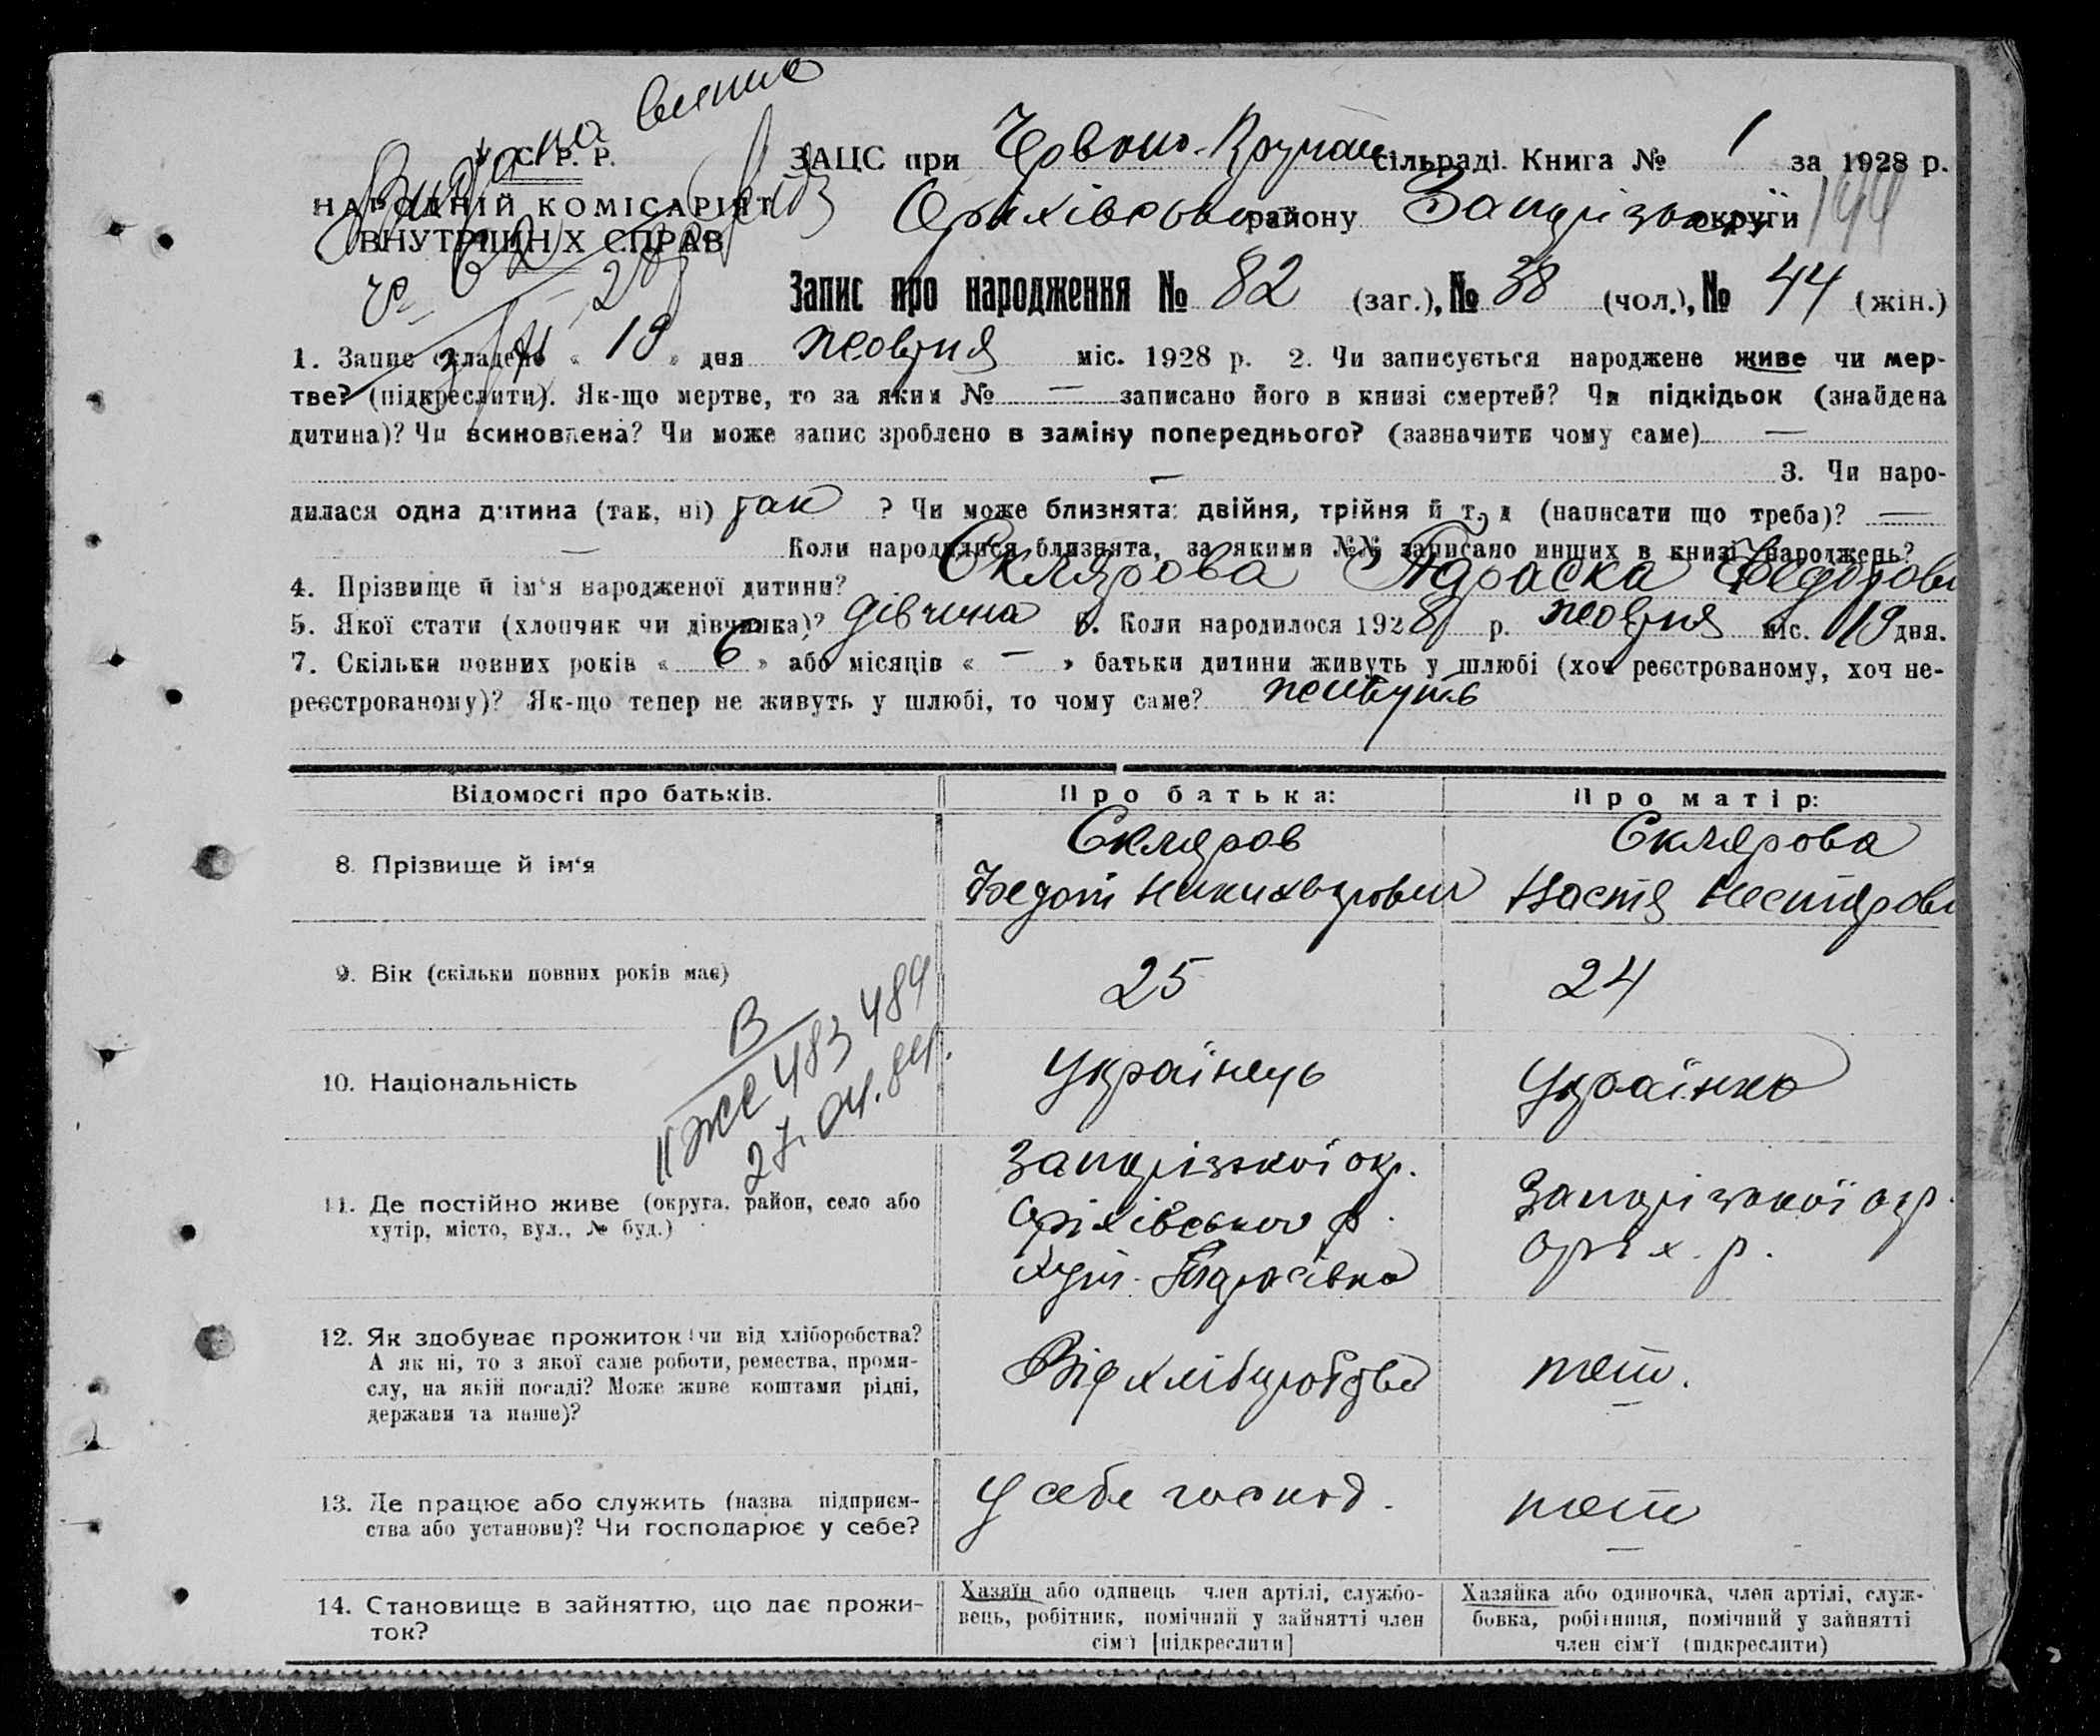 Видана
У. С. Р. Р.
НАРОДНІЙ КОМІСАРІЯТ
ВНУТРІШНІХ СПРАВ
ЗАЦС при Червоно- сільраді. Книга № 1 за 1928 р.
Оріхівського району Запорізької округи
Запис про народження № 82 (заг.), № 38 (чол.), № 44 (жін.)
1. Запис складено « 19 » дня жовтня міс. 1928 р. 2. Чи записується народжене живе чи мер-
тве? (підкреслити). Як-що мертве, то за яким № — записано його в книзі смертей? Чи підкідьок (знайдена
дитина)? Чи всиновлена? Чи може запис зроблено в заміну попереднього? (зазначити чому саме) —
— 3. Чи наро-
дилася одна дитина (так, ні) так ? Чи може близнята: двійня, трійня й т. д (написати що треба)? —
— Коли народилися близнята, за якими №№ записано инших в книзі народжень?
4. Прізвище й ім‘я народженої дитини? Склярова Параска Федотовн
5. Якої стати (хлопчик чи дівчинка)? дівчина 6. Коли народилося 1928 р. жовтня міс. 19 дня.
7. Скільки повних років « 6 » або місяців « — » батьки дитини живуть у шлюбі (хоч реєстрованому, хоч не-
реєстрованому)? Як-що тепер не живуть у шлюбі, то чому саме? живуть
Відомості про батьків. Про батька: Про матір:
8. Прізвище й ім‘я
Скляров
Федот
Склярова
Настя
9. Вік (скільки повних років має) 25 24
10. Національність Українець Українка
ІІ ЖС 483484
27.04.84р.
11. Де постійно живе (округа, район, село або
хутір, місто, вул., № буд.)
Запорізької окр.
Оріхівського р.
хут. Тарасівка
Запорізької окр.
Оріх. р.
12. Як здобуває прожиток (чи від хліборобства?
А як ні, то з якої саме роботи, ремества, проми-
слу, на якій посаді? Може живе коштами рідні,
держави та инше)?
Від хліборобства
теж.
13. Де працює або служить (назва підприєм-
ства або установи)? Чи господарює у себе?
У себе господ.
теж
14. Становище в зайняттю, що дає прожи-
ток?
Хазяїн або одинець член артілі, службо-
вець, робітник, помічний у зайнятті член
сім‘ї [підкреслити]
Хазяйка або одиночка, член артілі, служ-
бовка, робітниця, помічний у зайнятті
член сім‘ї (підкреслити)